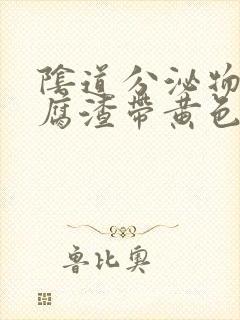 陰道分泌物
腐渣帶黃色
魯比奧